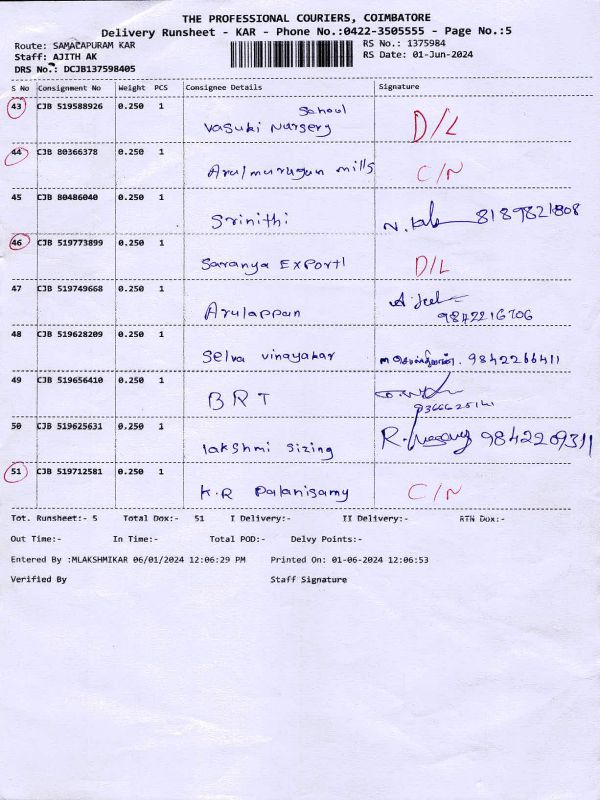 THE PROFESSIONAL COURIERS, COIMBATORE
Delivery Runsheet - KAR - Phone No.:0422-3505555 - Page No.:5
Route: SAMALAPURAM KAR
RS No.: 1375984
Staff: AJITH AK
RS Date: 01-Jun-2024
DRS No.: DCJB137598405
S No Consignment No Weight PCS Consignee Details Signature
43 CJB 519588926 0.250 1 Vasuki Nursery School D/L
44 CJB 80366378 0.250 1 Arulmurugan mills C/N
45 CJB 80486040 0.250 1 Srinithi 8189821808
46 CJB 519773899 0.250 1 Saranya Export D/L
47 CJB 519749668 0.250 1 Arulappan
9842216706
48 CJB 519628209 0.250 1 Selva vinayakar 9842266411
49 CJB 519656410 0.250 1 BRT
50 CJB 519625631 0.250 1 lakshmi sizing 9842209311
51 CJB 519712581 0.250 1 K.R Palanisamy C/N
Tot. Runsheet:- 5 Total Dox:- 51 I Delivery:- II Delivery:- RTN Dox:-
Out Time:- In Time:- Total POD:- Delvy Points:-
Entered By :MLAKSHMIKAR 06/01/2024 12:06:29 PM Printed On: 01-06-2024 12:06:53
Verified By Staff Signature